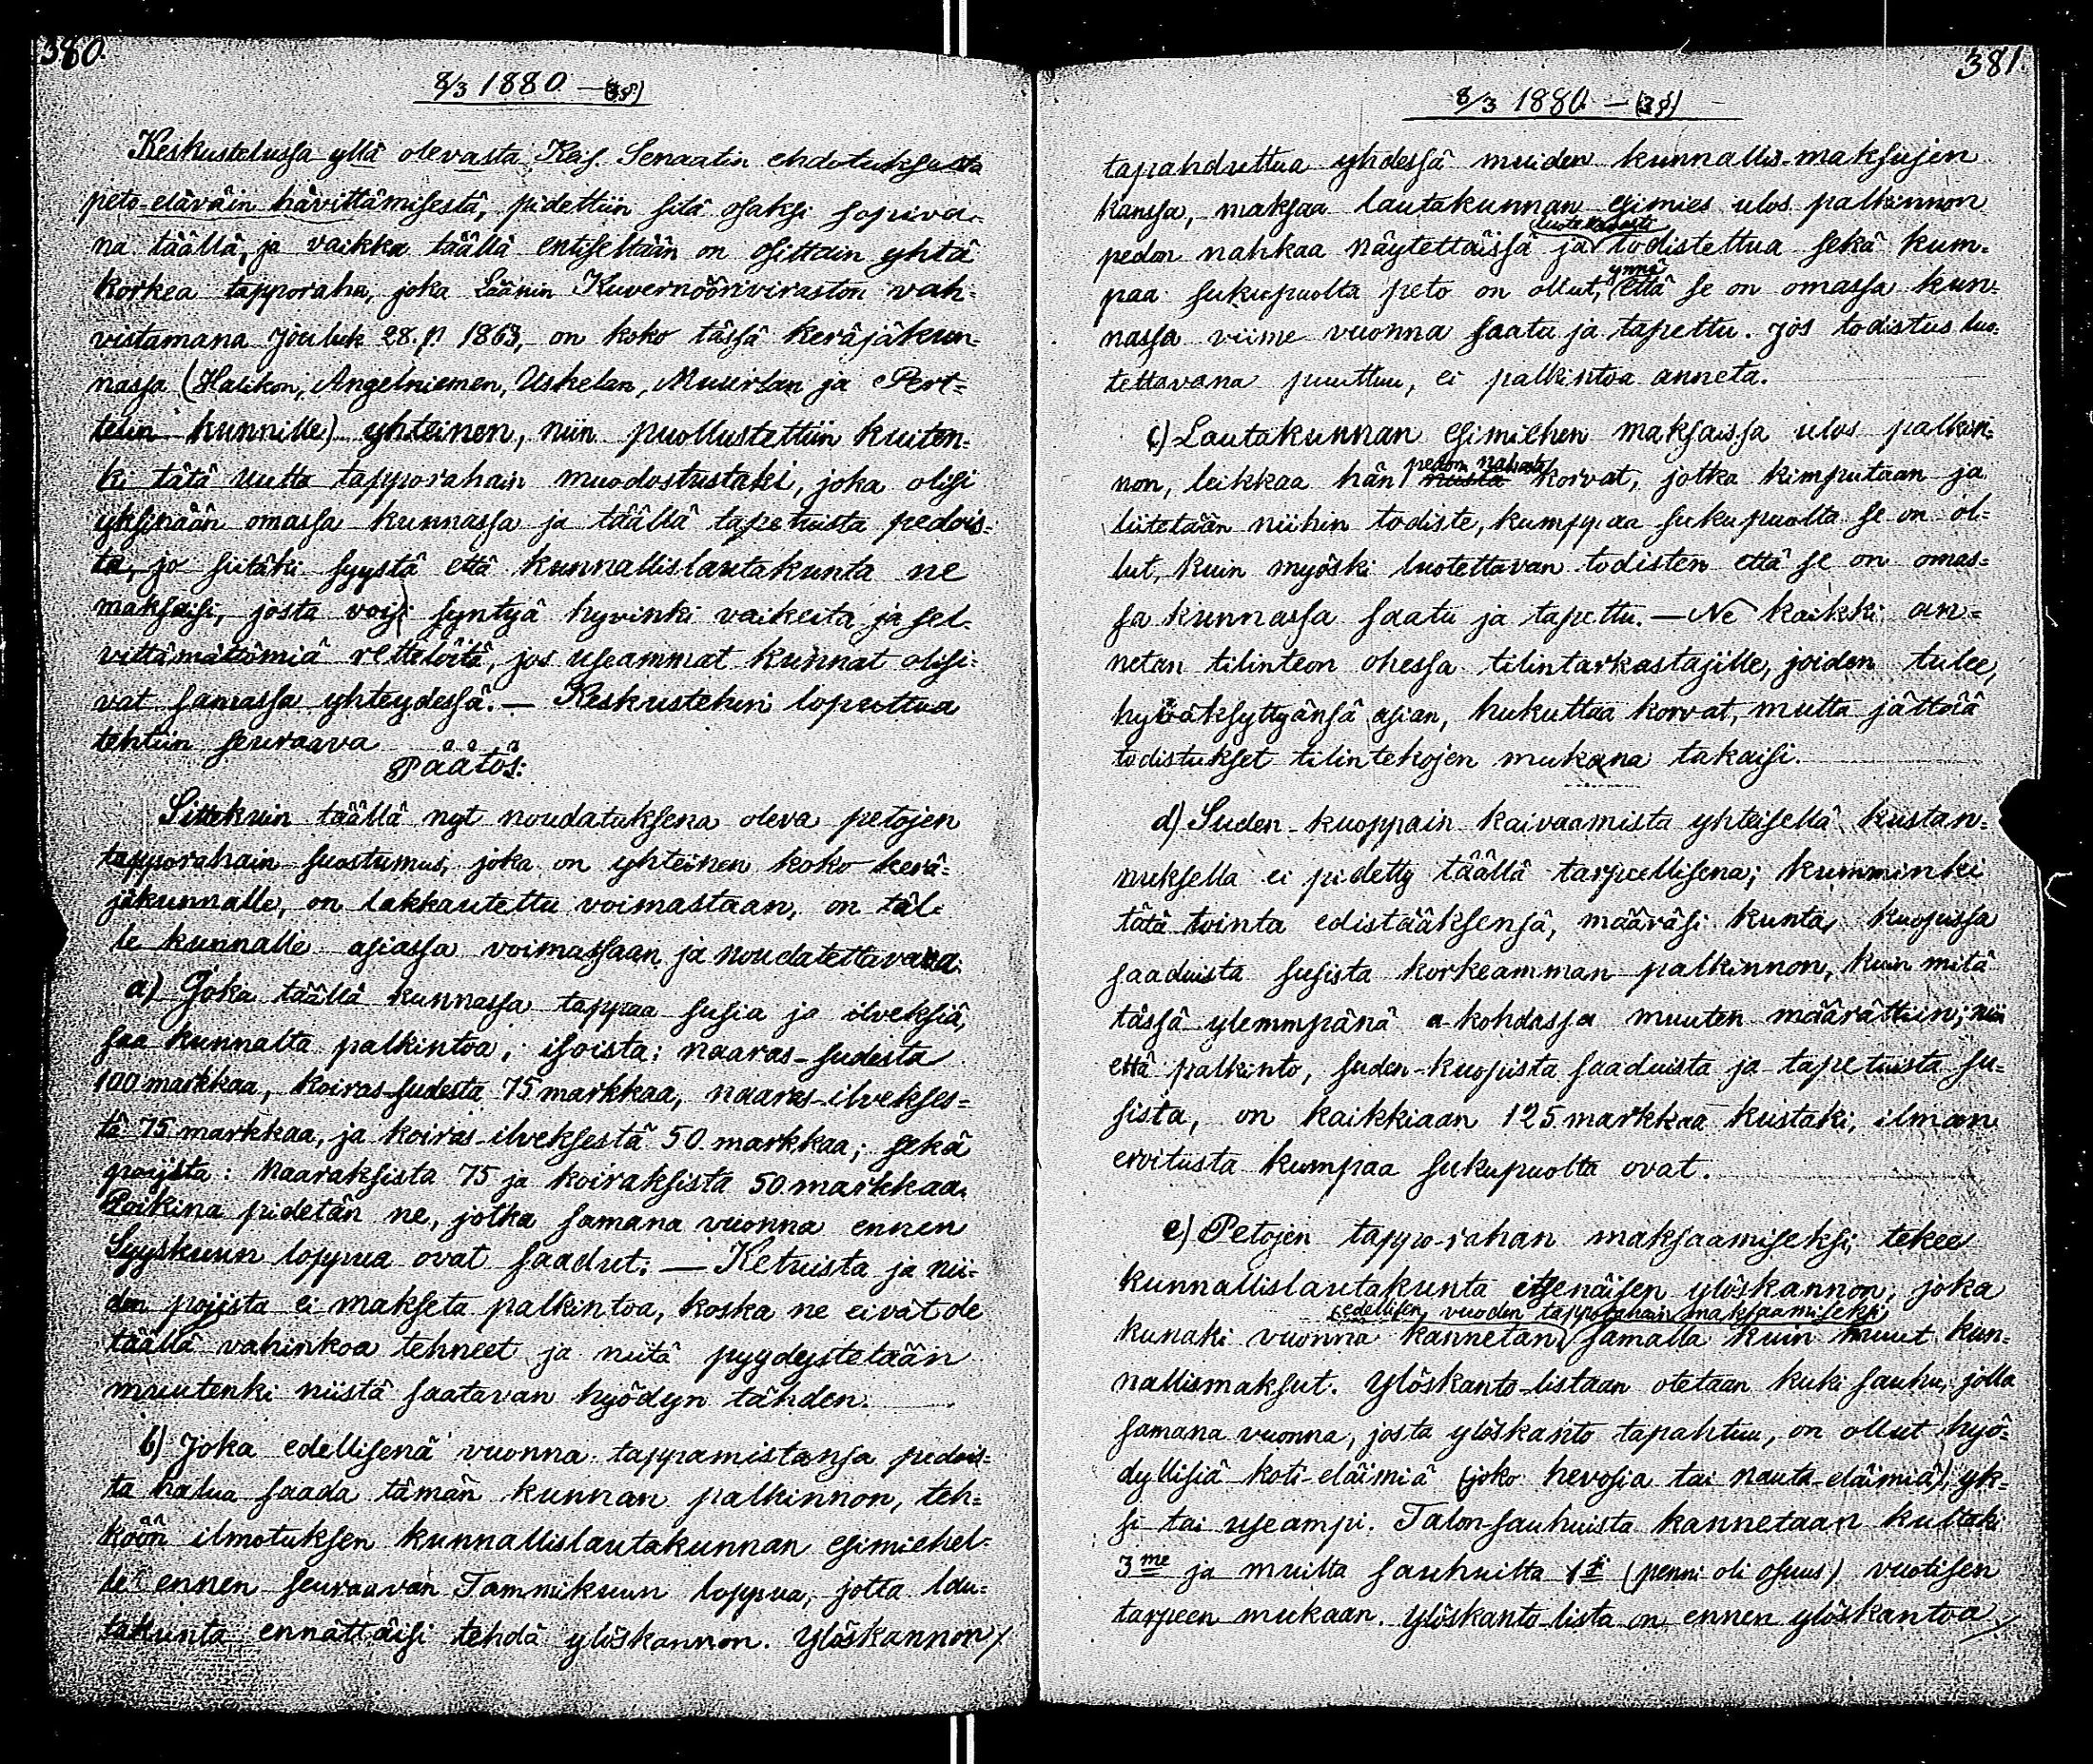 380.
8/3 1880 — (3§)
Keskustelussa yllä olevasta Keis. Senaatin ehdotuksesta
peto-eläväin hävittämisestä, pidettiin sitä osaksi sopiva-
na täällä, ja vaikka täällä entiseltään on osittain yhtä
korkea tapporaha, joka Läänin Kuvernöörinviraston vah-
vistamana Jouluk 28. p. 1863, on koko tässä keräjäkun-
nassa (Halikon, Angelniemen, Uskelan, Muurlan ja Pert-
telin kunnille) yhteinen, niin puollustettiin kuiten-
ki tätä uutta tapporahain muodostustaki, joka olisi
yksinään omassa kunnassa ja täällä tapetuista pedois-
ta, jo siitäki syystä että kunnallislautakunta ne
maksaisi, josta voisi syntyä hyvinki vaikeita ja sel-
vittämättömiä rettelöitä, jos useammat kunnat olisi-
vat samassa yhteydessä. — Keskustelun loputtua
tehtiin seuraava
Päätös:
Sittekuin täällä nyt noudatuksena oleva petojen
tapporahain suostumus, joka on yhteinen koko kerä-
jäkunnalle, on lakkautettu voimastaan, on täl-
le kunnalle asiassa voimassaan ja noudatettavana.
a) Joka täällä kunnassa tappaa susia ja ilveksiä,
saa kunnalta palkintoa; isoista: naaras-sudesta
100 markkaa, koiras-sudesta 75 markkaa, naaras-ilvekses-
tä 75 markkaa, ja koiras-ilveksestä 50 markkaa; sekä
poijista: Naaraksista 75 ja koiraksista 50 markkaa.
Poikina pidetän ne, jotka samana vuonna ennen
Syyskuun loppua ovat saadut; — Ketuista ja nii-
den pojista ei makseta palkintoa, koska ne eivät ole
täällä vahinkoa tehneet ja niitä pyydystetään
muutenki niistä saatavan hyödyn tähden.
b) Joka edellisenä vuonna tappamistansa pedois-
ta halua saada tämän kunnan palkinnon, teh-
köön ilmotuksen kunnallislautakunnan esimiehel-
le ennen seuraavan Tammikuun loppua, jotta lau-
takunta ennättäisi tehdä ylöskannon. Ylöskannon/
381.
8/3 1880. — (3§)
tapahduttua yhdessä muiden kunnallis-maksujen
kanssa, maksaa lautakunnan esimies ulos palkinnon
luotettavasti
pedon nahkaa näytettäissä ja todistettua sekä kum-
ynnä
paa sukupuolta peto on ollut, että se on omassa kun-
nassa viime vuonna saatu ja tapettu. Jos todistus luo-
tettavana puuttuu, ei palkintoa anneta.
c) Lautakunnan esimiehen maksaissa ulos palkin-
pedon nahasta
non, leikkaa hän korvat, jotka kimputaan ja
liitetään niihin todiste, kumppaa sukupuolta se on ol-
lut, kuin myöski luotettavan todisten että se on omas-
sa kunnassa saatu ja tapettu. — Ne kaikki an-
netan tilinteon ohessa tilintarkastajille, joiden tulee,
hyväksyttyänsä asian, hukuttaa korvat, mutta jättää
todistukset tilintekojen mukana takaisi.
d) Suden-kuoppain kaivaamista yhteisellä kustan-
nuksella ei pidetty täällä tarpeellisena; kumminki
tätä tointa edistääksensä, määräsi kunta, kuopissa
saaduista susista korkeamman palkinnon, kuin mitä
tässä ylemmpänä a-kohdassa muuten määrättiin; niin
että palkinto, suden-kuopista saaduista ja tapetuista su-
sista, on kaikkiaan 125 markkaa kustaki, ilman
eroitusta kumpaa sukupuolta ovat.
e) Petojen tappo-rahan maksaamiseksi, tekee
kunnallislautakunta itsenäisen ylöskannon, joka
edellisen vuoden tapporahain maksaamiseksi
kunaki vuonna kannetan samalla kuin muut kun-
nallismaksut. Ylöskanto-listaan otetaan kuki sauhu, jolla
samana vuonna, josta ylöskanto tapahtuu, on ollut hyö-
dyllisiä koti-eläimiä (joko hevosia tai nauta-eläimiä), yk-
si tai useampi. Talon-sauhuista kannetaan kultaki
3 me ja muilta sauhuilta 1 si (penni oli osuus) vuotisen
tarpeen mukaan. Ylöskanto-lista on ennen ylöskantoa